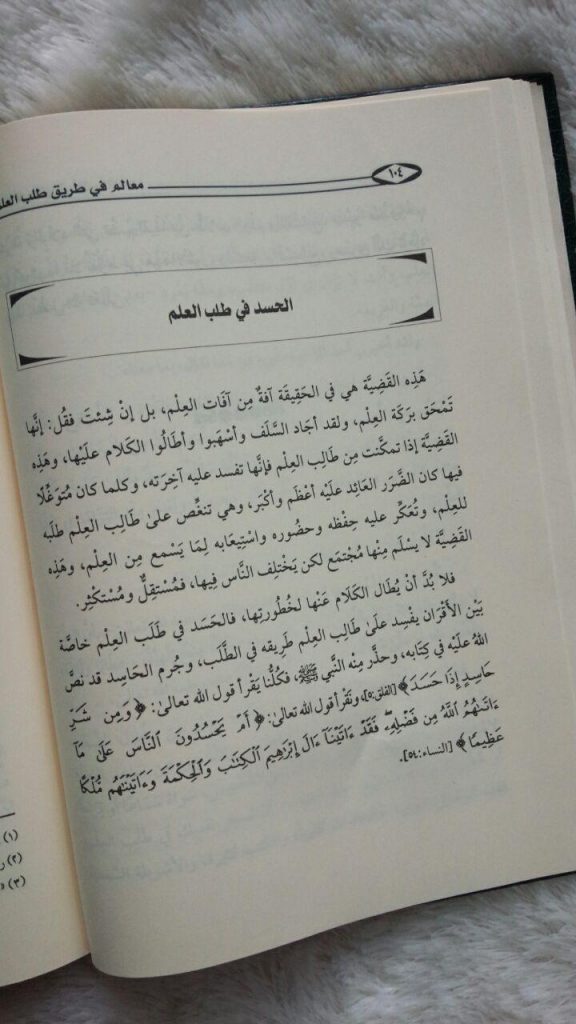 ١٠٤
معالم في طريق طلب العلم
الحسد في طلب العلم
هَذِه القَضِيَّة هي في الحَقِيقَة آفةٌ مِن آفَات العِلْم، بل إنْ شِئتَ فقُل: إنَّها
تَمْحَق بَركَة العِلْم، ولقد أجَاد السَّلَف وأسْهَبوا وأطَالُوا الكَلام علَيْها، وهَذِه
القَضِيَّة إذا تمكَّنت مِن طَالِب العِلْم فإنَّها تفسد عليه آخِرَته، وكلما كان مُتوَغِّلًا
فيها كان الضَّرَر العَائِد علَيْه أعْظَم وأكْبَر، وهي تنغِّص علىٰ طَالِب العِلْم طلَبه
للعِلْم، وتُعَكِّر عليه حِفْظه وحضُوره واسْتِيعَابه لِمَا يَسْمع مِن العِلْم، وهَذِه
القَضِيَّة لا يسْلَم مِنْها مُجْتمَع لكن يَخْتلِف النَّاس فِيها، فمُسْتقِلٌّ ومُسْتكْثِر.
فلا بُدَّ أنْ يُطَال الكَلام عَنْها لخُطُورتِها، فالحَسَد في طَلَب العِلْم خاصَّة
بَيْن الأقْرَان يفْسِد علَىٰ طَالِب العِلْم طَرِيقه في الطَّلَب، وجُرم الحَاسِد قد نصَّ
اللهُ علَيْه في كِتَابه، وحذَّر مِنْه النَّبي ﷺ، فكُلُّنا يَقْرأ قول الله تعالىٰ: ﴿وَمِن شَرِّ
حَاسِدٍ إِذَا حَسَدَ﴾ [الفلق:٥]، ونَقْرأ قول الله تعالىٰ: ﴿أَمْ يَحْسُدُونَ ٱلنَّاسَ عَلَىٰ مَآ
ءَاتَىٰهُمُ ٱللَّهُ مِن فَضْلِهِۦ فَقَدْ ءَاتَيْنَآ ءَالَ إِبْرَٰهِيمَ ٱلْكِتَٰبَ وَٱلْحِكْمَةَ وَءَاتَيْنَٰهُم مُّلْكًا
عَظِيمًا﴾ [النساء:٥٤].
(١)
(٢) ر
(٣)